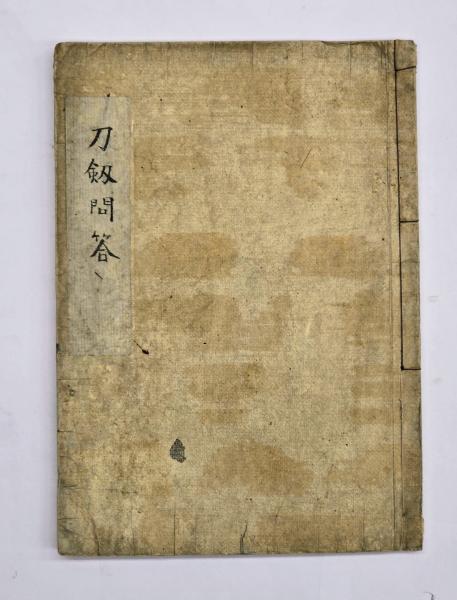 刀劔問答